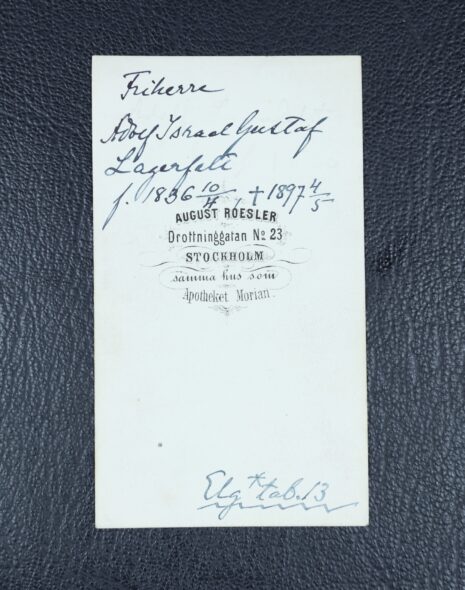 Friherre
Adolf Israel Gustaf
Lagerfelt
f. 1836 10/4 † 1897 4/5
AUGUST ROESLER
Drottninggatan No 23
STOCKHOLM
samma hus som
Apotheket Morian.
Elg* tab. 13